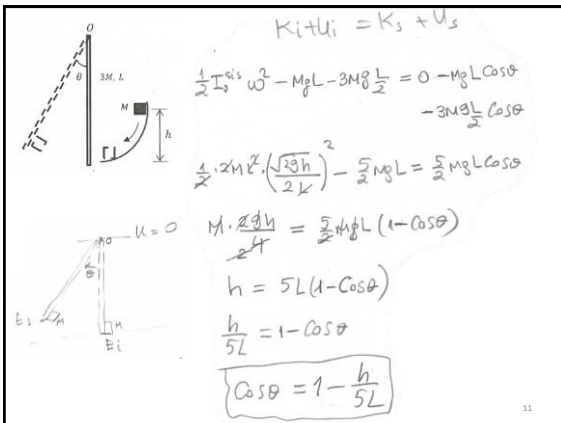 O
θ
3M, L
M
h
Ki+Ui = Ks + Us
1/2 I₀ˢⁱˢ ω² - MgL - 3Mg L/2 = 0 - MgL Cosθ
- 3Mg L/2 Cosθ
1/2 · 2ML² · (√2gh / 2L)² - 5/2 MgL = 5/2 MgL Cosθ
M · 2gh / 2 4 = 5/2 MgL (1-Cosθ)
h = 5L(1-Cosθ)
h/5L = 1-Cosθ
Cosθ = 1 - h/5L
U=0
θ
Es
M
M
Ei
11